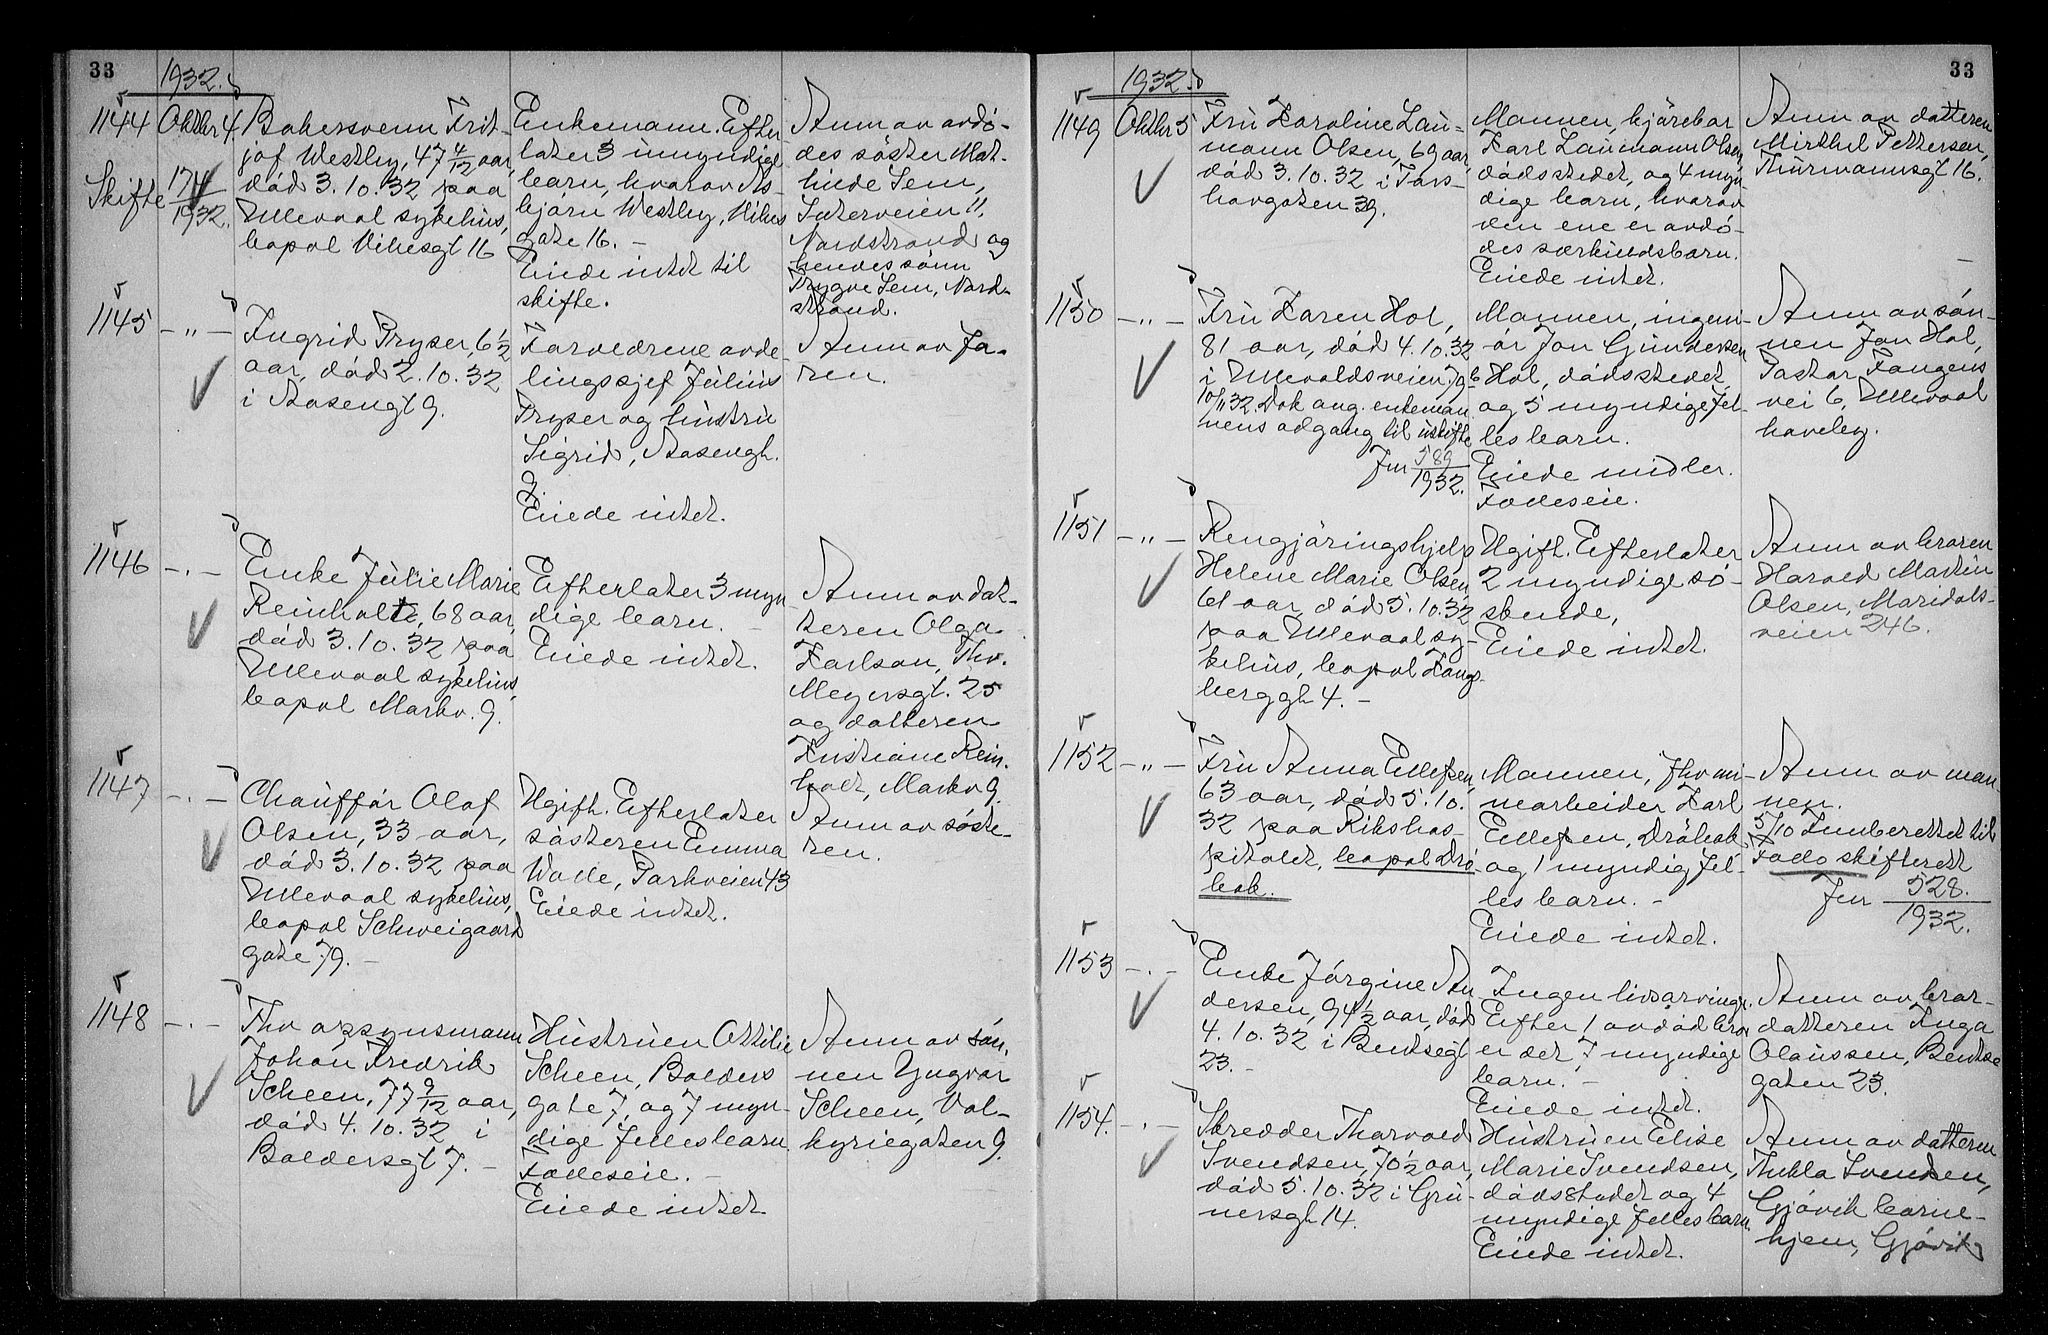 33
1932.
1144
Oktbr 4.
Skifte 174/1932.
Bakersvenn Frit-
jof Westley, 47 4/12 aar,
død 3.10.32 paa
Ullevaal sykehus,
bopæl Vibesgt 16
Enkemann. Efter
later 3 umyndige
barn, hvorav As-
bjørn Westley, Vibes
gate 16. –
Eiede intet til
skifte.
Anm av avdø-
des søster Mat-
hilde Sem,
Sæterveien 11,
Nordstrand og
hendes sønn
Trygve Sem, Nord-
strand.
1145
– " –
Ingrid Pryser, 6 1/2
aar, død 2.10.32
i Aasengt 9.
Forældrene avde-
lingssjef Julius
Pryser og hustru
Sigrid, Aasengt.
9
Eiede intet.
Anm av fa-
ren.
1146
– . –
Enke Julie Marie
Reinholtz, 68 aar,
død 3.10.32 paa
Ullevaal sykehus,
bopæl Markv. 9.
Efterlater 3 myn
dige barn. –
Eiede intet.
Anm av dat-
teren Olga
Karlson, Thv.
Meyersgt. 25
og datteren
Kristiane Rein-
holt, Markv 9.
1147
– . –
Chauffør Olaf
Olsen, 33 aar,
død 3.10.32 paa
Ullevaal sykehus,
bopæl Schweigaard
gate 79. –
Ugift. Efterlater
søsteren Emma
Wolle, Parkveien 43
Eiede intet.
Anm av søste-
ren.
1148
– . –
Fhv opsynsmann
Johan Fredrik
Scheen, 77 9/12 aar,
død 4.10.32 i
Baldersgt 7. –
Hustruen Ottilie
Scheen, Balders
gate 7, og 7 myn-
dige felles barn
Fælleseie. –
Eiede intet
Anm av søn-
nen Yngvar
Scheen, Val-
kyriegaten 9.
33
1932.
1149
Oktbr 5
Fru Karoline Lau-
mann Olsen, 69 aar,
død 3.10.32 i Tors-
havgaten 39.
Mannen, kjørekar
Karl Laumann Olsen,
dødsstedet, og 4 myn
dige barn, hvorav
den ene er avdø-
des særkuldsbarn.
Eiede intet.
Anm av datteren
Mirthel Pettersen,
Thurmannsgt 16.
–
1150
– " –
Fru Karen Hol,
81 aar, død 4.10.32
i Ullevoldsveien 79 b
10/11 32. Dok ang. enkeman
nens adgang til uskifte
Jnr 589/1932.
Mannen, ingeni-
ør Jon Gundersen
Hol, dødsstedet,
og 5 myndige fel-
les barn.
Eiede midler.
Fælleseie.
Anm av søn-
nen Jon Hol,
Pastor Fangens
vei 6, Ullevaal
haveby.
1151
– " –
Rengjøringshjelp
Helene Marie Olsen,
61 aar, død 5.10.32
paa Ullevaal sy-
kehus, bopæl Kongs-
berggt 4. –
Ugift. Efterlater
2 myndige sø-
skende,
Eiede intet.
Anm av broren
Harald Martin
Olsen, Maridals-
veien 246.
1152
– " –
Fru Anna Ellefsen,
63 aar, død 5.10.
32 paa Rikshos-
pitalet, bopæl Drø-
bak.
Mannen, fhv mi-
nearbeider Karl
Ellefsen, Drøbak
og 1 myndig fel-
les barn. –
Eiede intet.
Anm av man
nen.
5/10 Innberettet til
Follo skifterett
Jnr 528./1932.
1153
– . –
Enke Jørgine An
dersen, 94 1/2 aar, død
4.10.32 i Bentsegt
23. –
Ingen livsarvinger.
Efter 1 avdød bror
er det 7 myndige
barn. –
Eiede intet.
Anm av bror-
datteren Inga
Olaussen, Bentse
gaten 23.
1154.
– . –
Skredder Thorvald
Svendsen, 70 1/2 aar,
død 5.10.32 i Grü-
nersgt 14.
Hustruen Elise
Marie Svendsen,
dødsstedet og 4
myndige felles barn.
Eiede intet.
Anm av datteren
Thekla Svendsen,
Gjøvik barne-
hjem, Gjøvik